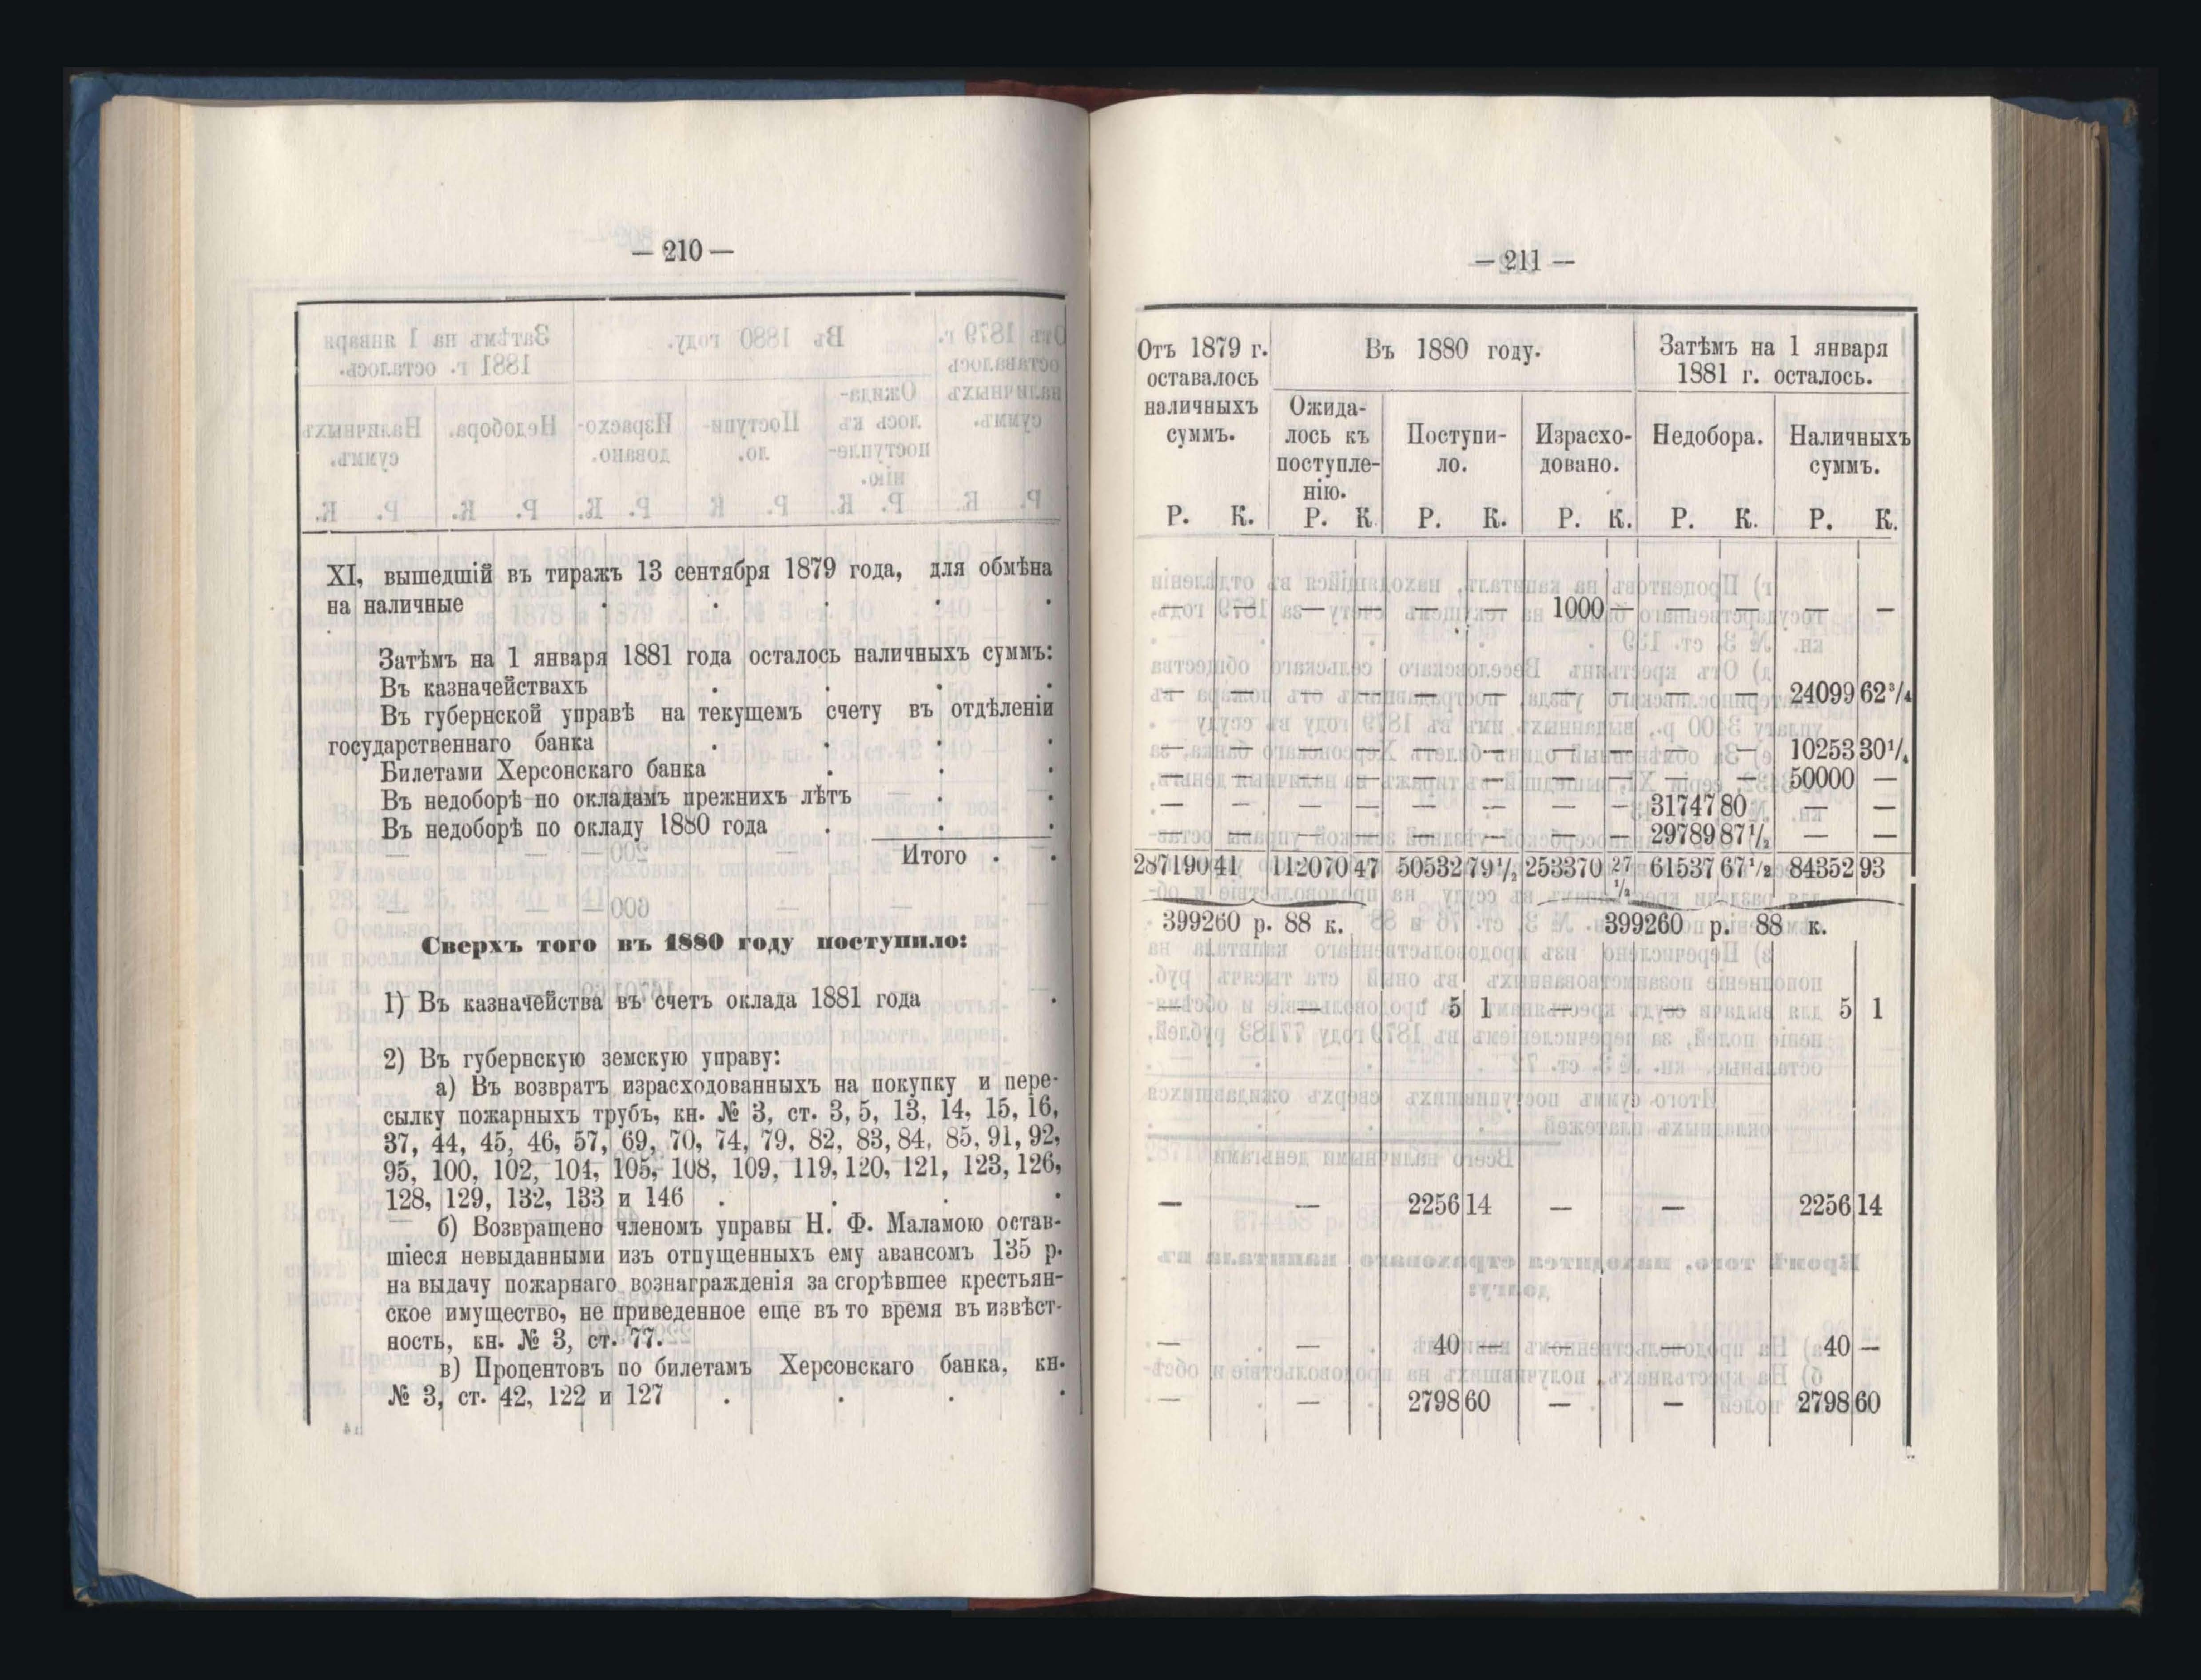 — 210 —
XI, вышедшій въ тиражъ 13 сентября 1879 года, для обмѣна
на наличные . . . . .
Затѣмъ на 1 января 1881 года осталось наличныхъ суммъ:
Въ казначействахъ . . . .
Въ губернской управѣ на текущемъ счету въ отдѣленіи
государственнаго банка . . . .
Билетами Херсонскаго банка . . .
Въ недоборѣ по окладамъ прежнихъ лѣтъ . .
Въ недоборѣ по окладу 1880 года . . .
Итого . .
Сверхъ того въ 1880 году поступило:
1) Въ казначейства въ счетъ оклада 1881 года .
2) Въ губернскую земскую управу:
а) Въ возвратъ израсходованныхъ на покупку и пере-
сылку пожарныхъ трубъ, кн. № 3, ст. 3, 5, 13, 14, 15, 16,
37, 44, 45, 46, 57, 69, 70, 74, 79, 82, 83, 84, 85, 91, 92,
95, 100, 102, 104, 105, 108, 109, 119, 120, 121, 123, 126,
128, 129, 132, 133 и 146 . . . .
б) Возвращено членомъ управы Н. Ф. Маламою остав-
шіеся невыданными изъ отпущенныхъ ему авансомъ 135 р.
на выдачу пожарнаго вознагражденія за сгорѣвшее крестьян-
ское имущество, не приведенное еще въ то время въ извѣст-
ность, кн. № 3, ст. 77.
в) Процентовъ по билетамъ Херсонскаго банка, кн.
№ 3, ст. 42, 122 и 127 . . . .
— 211 —
Отъ 1879 г.
оставалось
наличныхъ
суммъ.
Въ 1880 году.
Затѣмъ на 1 января
1881 г. осталось.
Ожида-
лось къ
поступле-
нію.
Поступи-
ло.
Израсхо-
довано.
Недобора.
Наличныхъ
суммъ.
Р. К. Р. К Р. К. Р. К. Р. К. Р. К.
— — — — — — 1000 — — — — —
— — — — — — — — — — 24099 62 3/4
— — — — — — — — — — 10253 30 1/4
— — — — — — — — — — 50000 —
— — — — — — — — 31747 80 — —
— — — — — — — — 29789 87 1/2 — —
287190 41 112070 47 50532 79 1/2 253370 27 1/2 61537 67 1/2 84352 93
399260 р. 88 к. 399260 р. 88 к.
— — 5 1 — — 5 1
— — 2256 14 — — 2256 14
— — 40 — — — 40 —
— — 2798 60 — — 2798 60